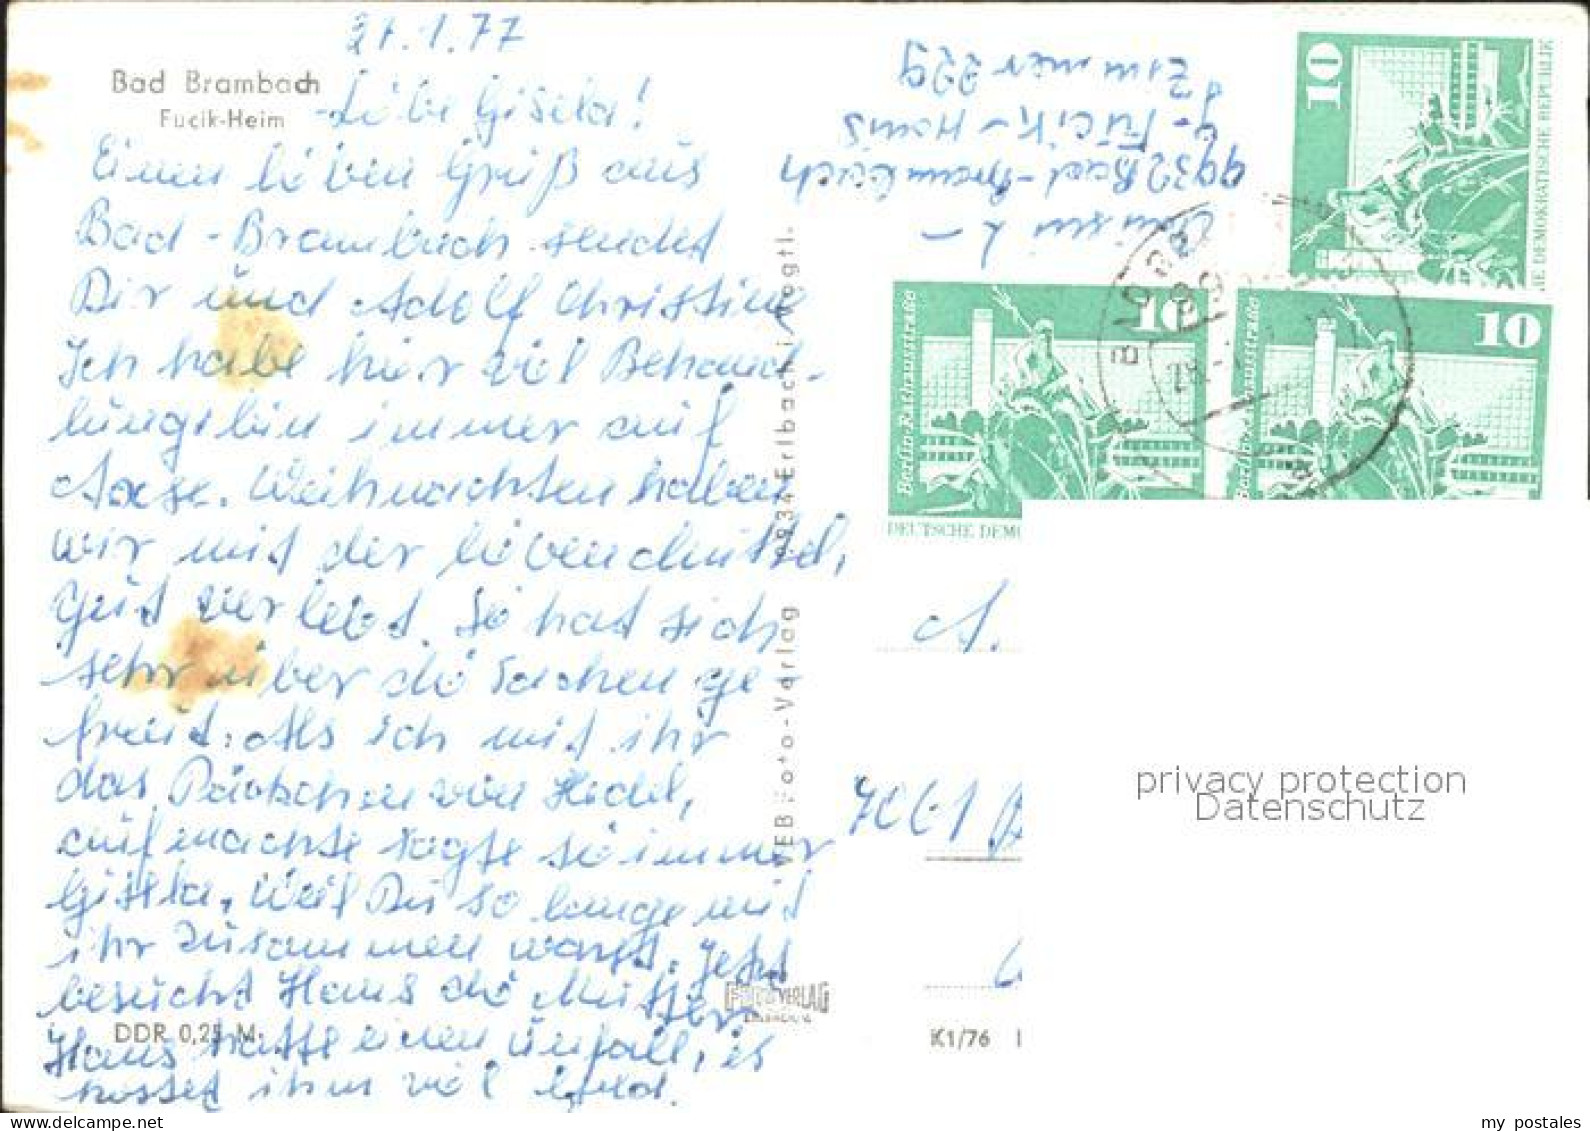 27.1.77
Bad Brambach
Fucik-Heim
Liebe Gisela!
Einen lieben Gruß aus
Bad-Brambach sendet
Dir und Adolf Christine
Ich habe hier viel Behand-
lungen bin immer auf
Achse. Weihnachten haben
wir mit der lieben Mutter,
gut verlebt. Sie hat sich
sehr über die Sachen ge-
freut. Als ich mit ihr
das Päckchen von Hedel,
aufmachte sagte sie immer
Gisela. Weil Du so lange mit
ihr zusammen warst. Jetzt
besucht Hans die Mutter.
Hans hatte einen Unfall, es
kostet ihm viel Geld.
DDR 0,25 M
VEB Foto-Verlag 9934 Erlbach i. Vogtl.
FOTO VERLAG
ERLBACH
K1/76
9932 Bad-Brambach
J-Fucik-Haus
Zimmer 229
10
DEUTSCHE DEMOKRATISCHE REPUBLIK
Berlin-Rathausstraße
10
DEUTSCHE DEMO
Berlin-Rathausstraße
10
A.
7061
privacy protection
Datenschutz
my postales